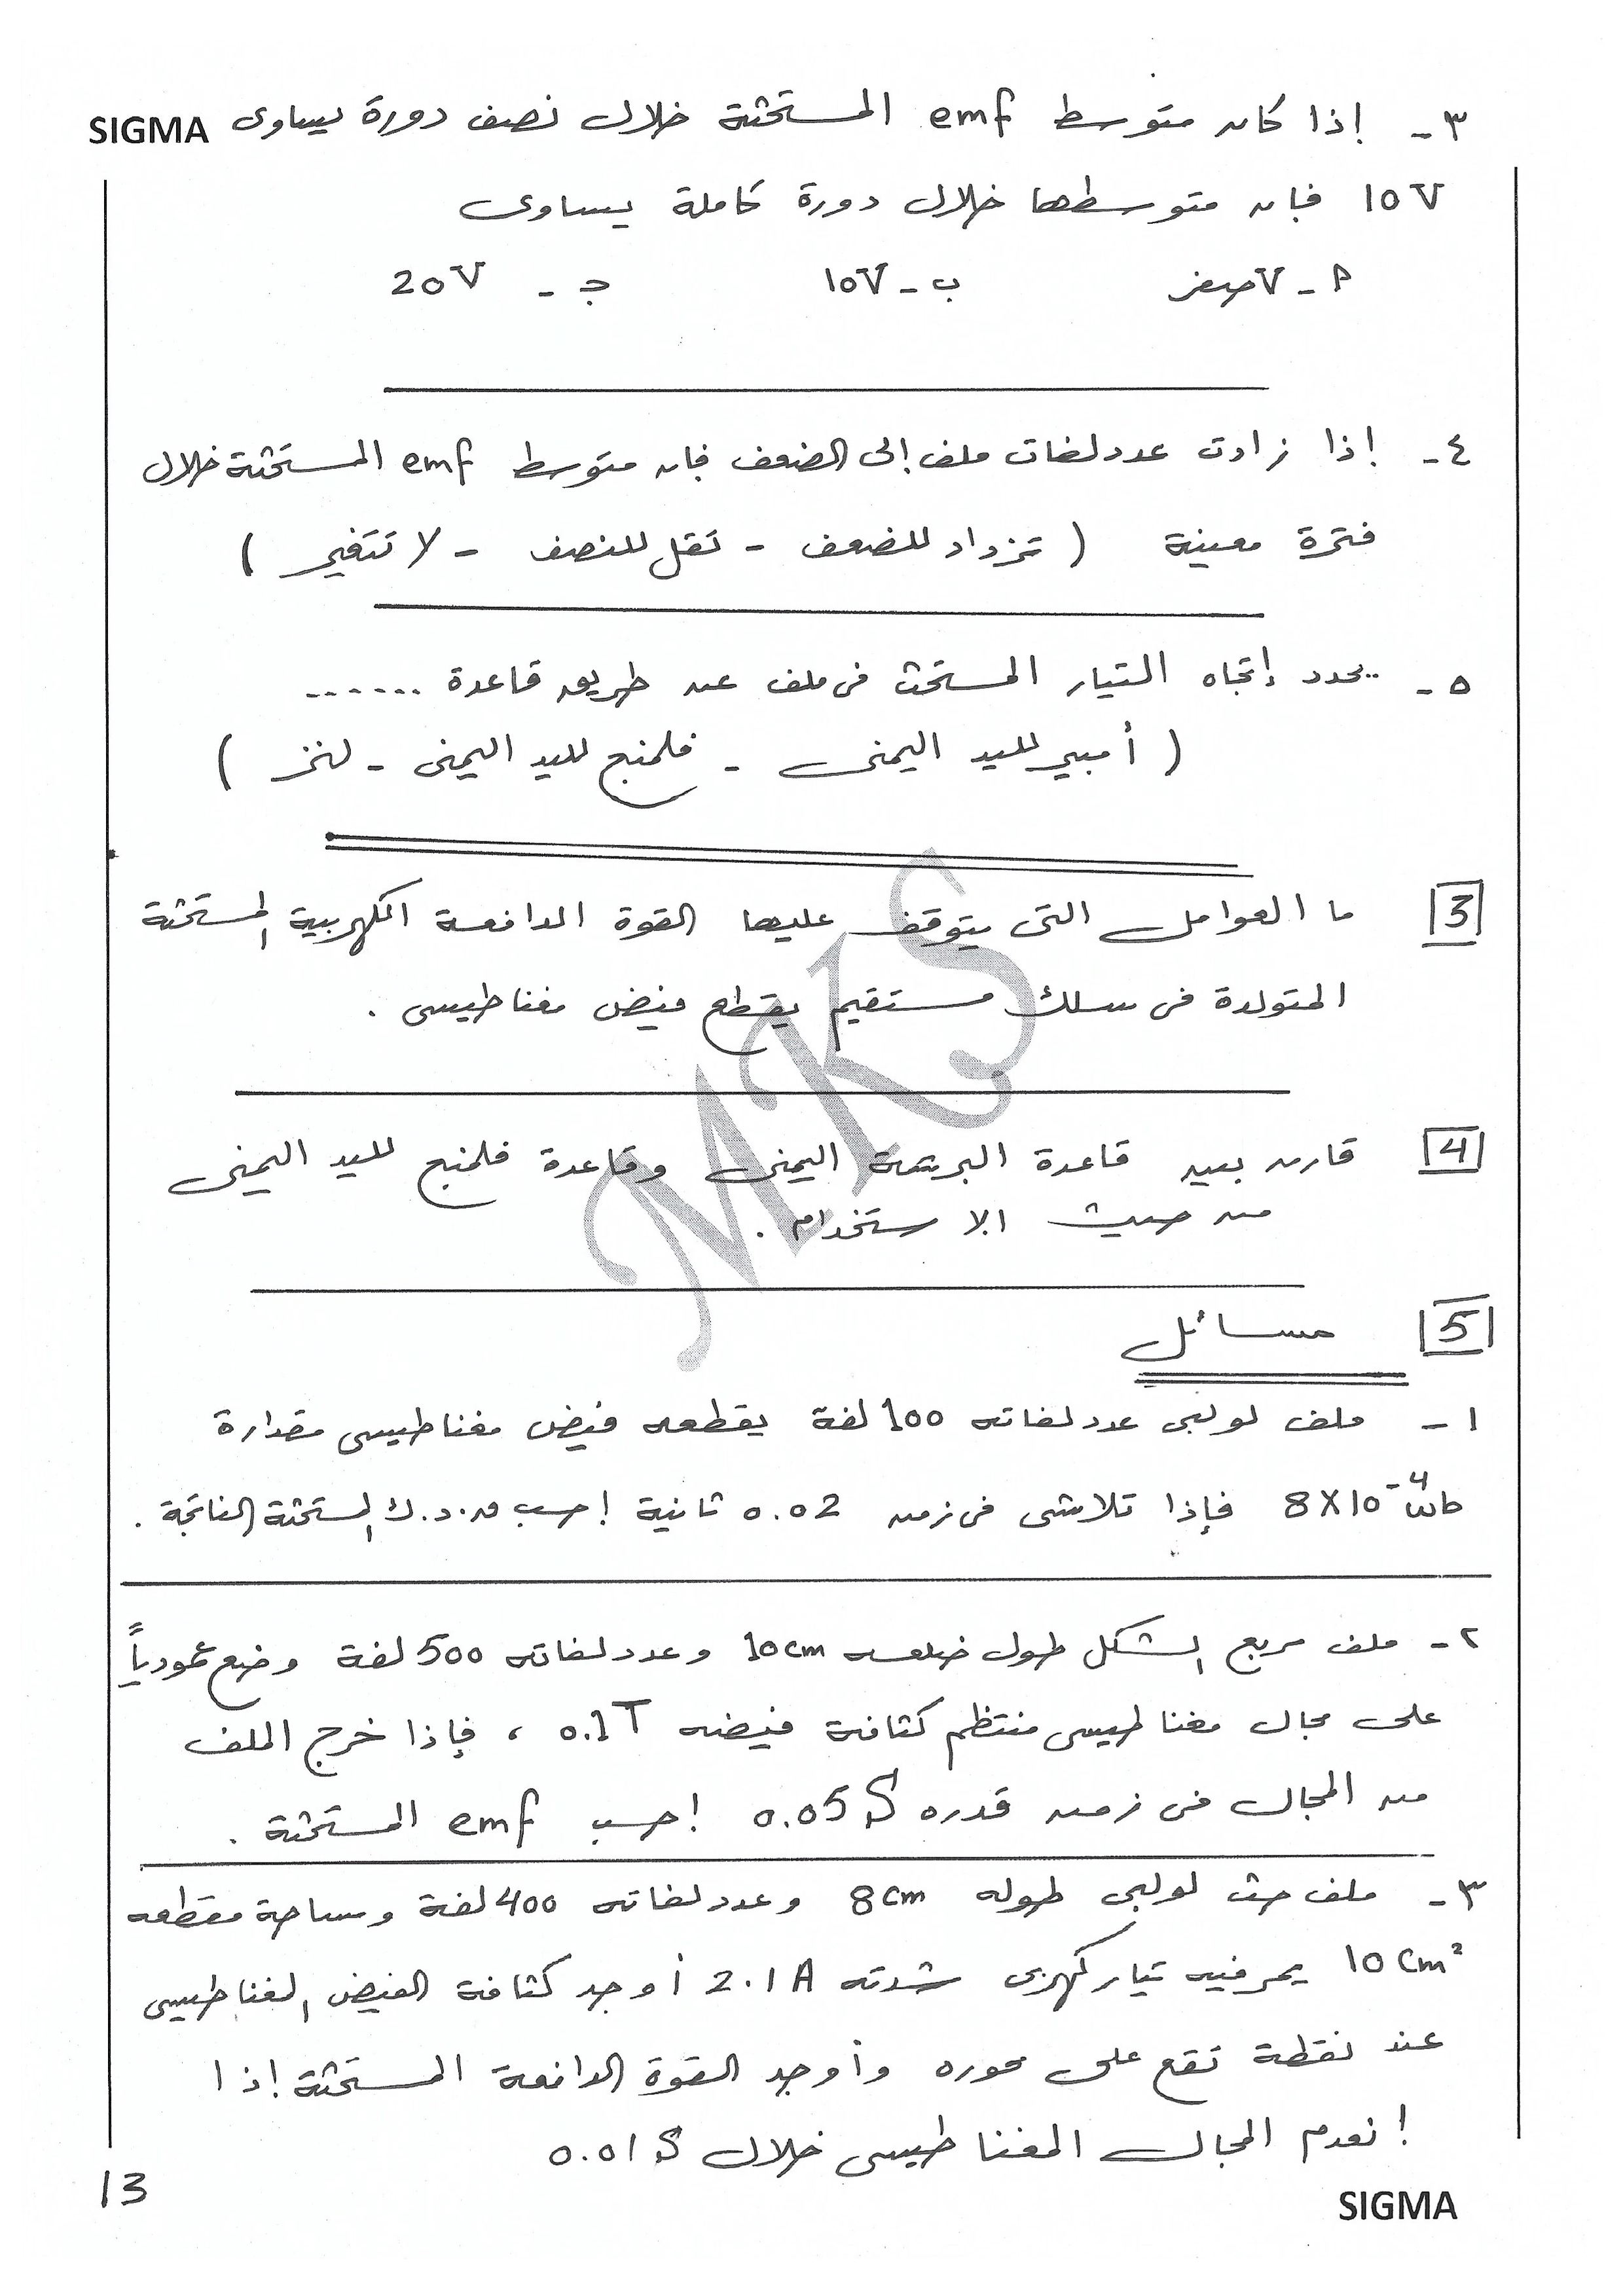 SIGMA
٣- إذا كان متوسط emf المستحثة خلال نصف دورة يساوى
10V فإن متوسطها خلال دورة كاملة يساوى
أ- صفر V ب- 10V جـ - 20V
٤- إذا زادت عدد لفات ملف إلى الضعف فإن متوسط emf المستحثة خلال
فترة معينة ( تزداد للضعف - تقل للنصف - لا تتغير )
٥- يحدد إتجاه التيار المستحث فى ملف عن طريق قاعدة ......
( أمبير لليد اليمنى - فلمنج لليد اليمنى - لنز )
3 ما العوامل التى يتوقف عليها القوة الدافعة الكهربية المستحثة
المتولدة فى سلك مستقيم يقطع فيض مغناطيسى .
4 قارن بين قاعدة البريمة اليمنى وقاعدة فلمنج لليد اليمنى
من حيث الاستخدام .
5 مسائل
١- ملف لولبى عدد لفاته 100 لفة يقطعه فيض مغناطيسى مقدارة
8X10⁻⁴ فإذا تلاشى فى زمن 0.02 ثانية إحسب ق.د.ك المستحثة الناتجة .
٢- ملف مربع الشكل طول ضلعه 10cm وعدد لفاته 500 لفة وضع عمودياً
على مجال مغناطيسى منتظم كثافة فيضه 0.1T ، فإذا خرج الملف
من المجال فى زمن قدره 0.05 S إحسب emf المستحثة .
٣- ملف حث لولبى طوله 8cm وعدد لفاته 400 لفة ومساحة مقطعه
10 cm² يمر فيه تيار كهربى شدته 2.1A أوجد كثافة الفيض المغناطيسى
عند نقطة تقع على محوره وأوجد القوة الدافعة المستحثة إذا
إنعدم المجال المغناطيسى خلال 0.01 S
13
SIGMA
MKS